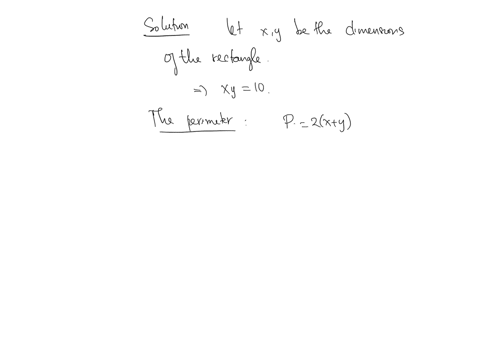 Solution let x,y be the dimensions
of the rectangle.
⇒ xy = 10.
The perimeter : P. = 2(x+y)